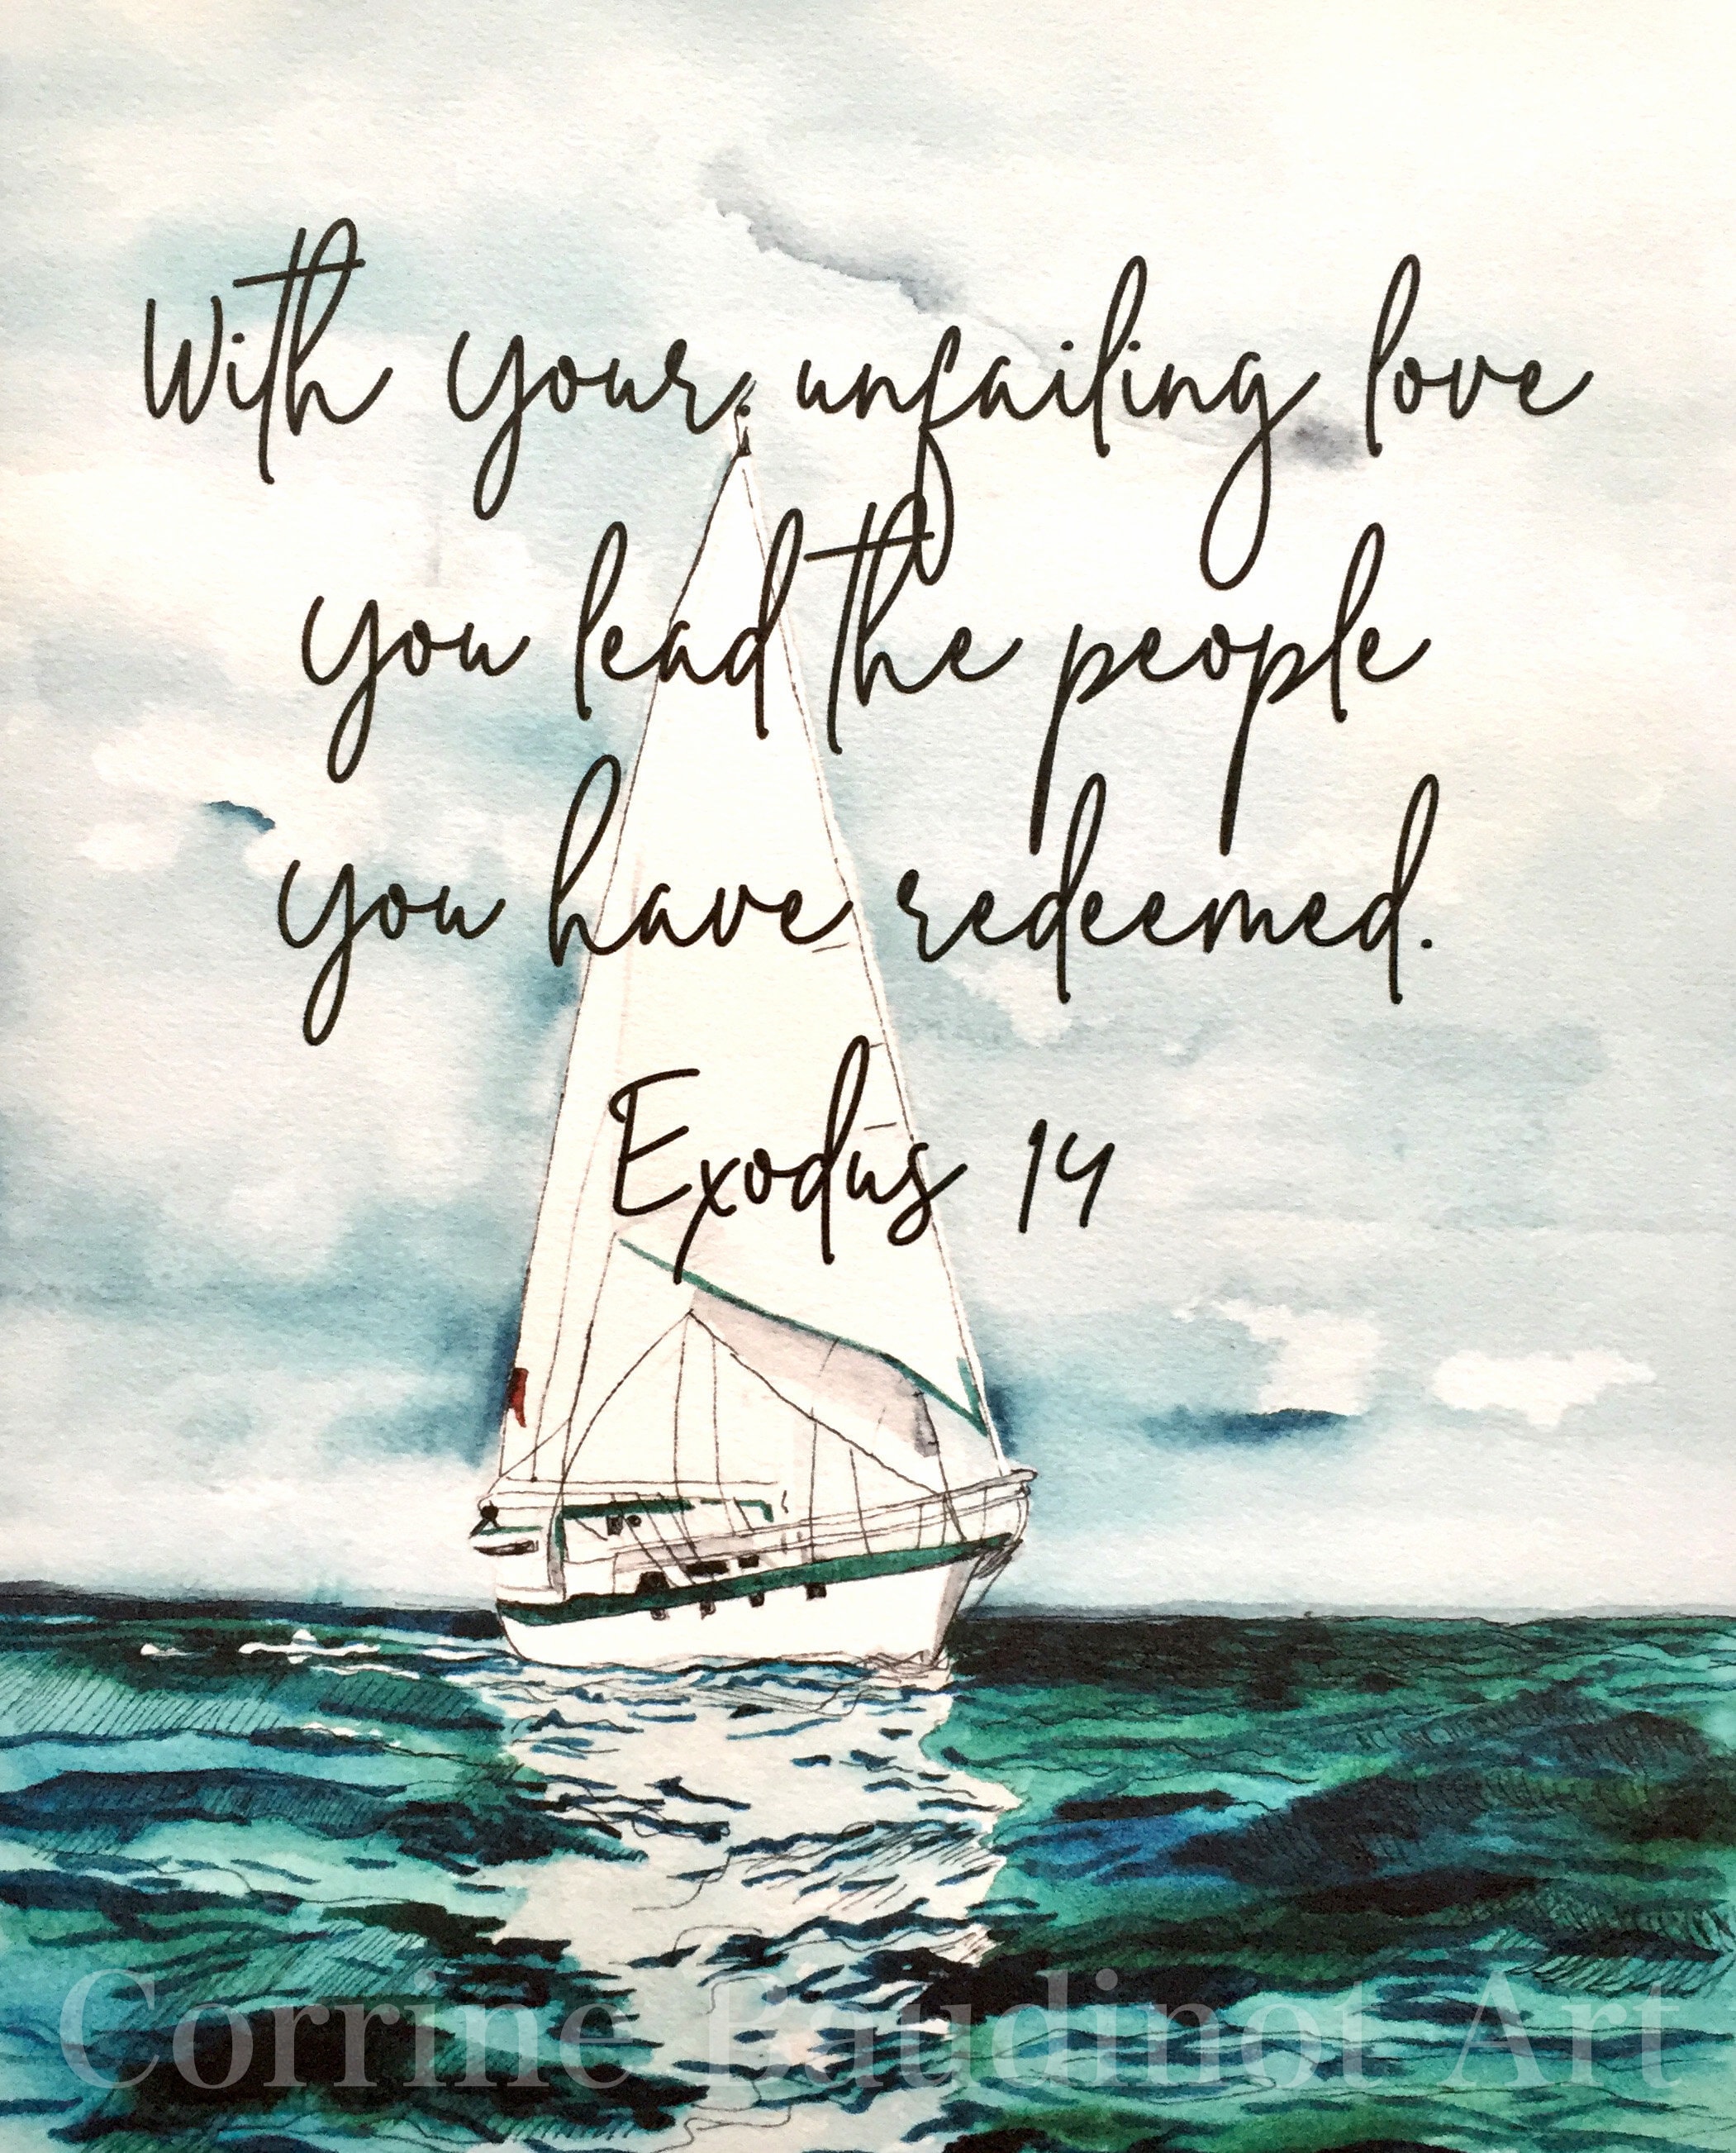 With your unfailing love
you lead the people
you have redeemed.
Exodus 14
Corrine Baudinot Art